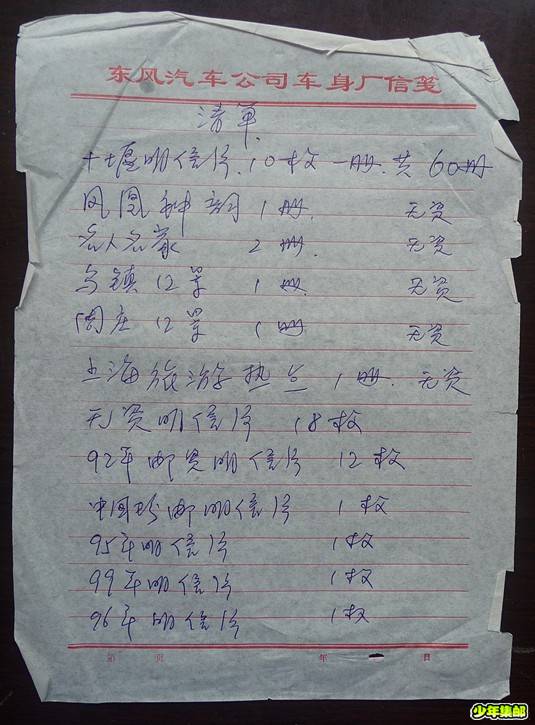 东风汽车公司车身厂信笺
清单
十堰明信片.10枚一册.共60册
凤凰 1册. 无资
名人名家 2册. 无资
乌镇 12 1册. 无资
周庄 12 1册 无资
上海旅游热点 1册. 无资
无资明信片 18枚
92年邮资明信片 12枚
中国珍邮明信片 1枚
95年明信片 1枚
99年明信片 1枚
96年明信片 1枚
第 页 年 日
少年集邮